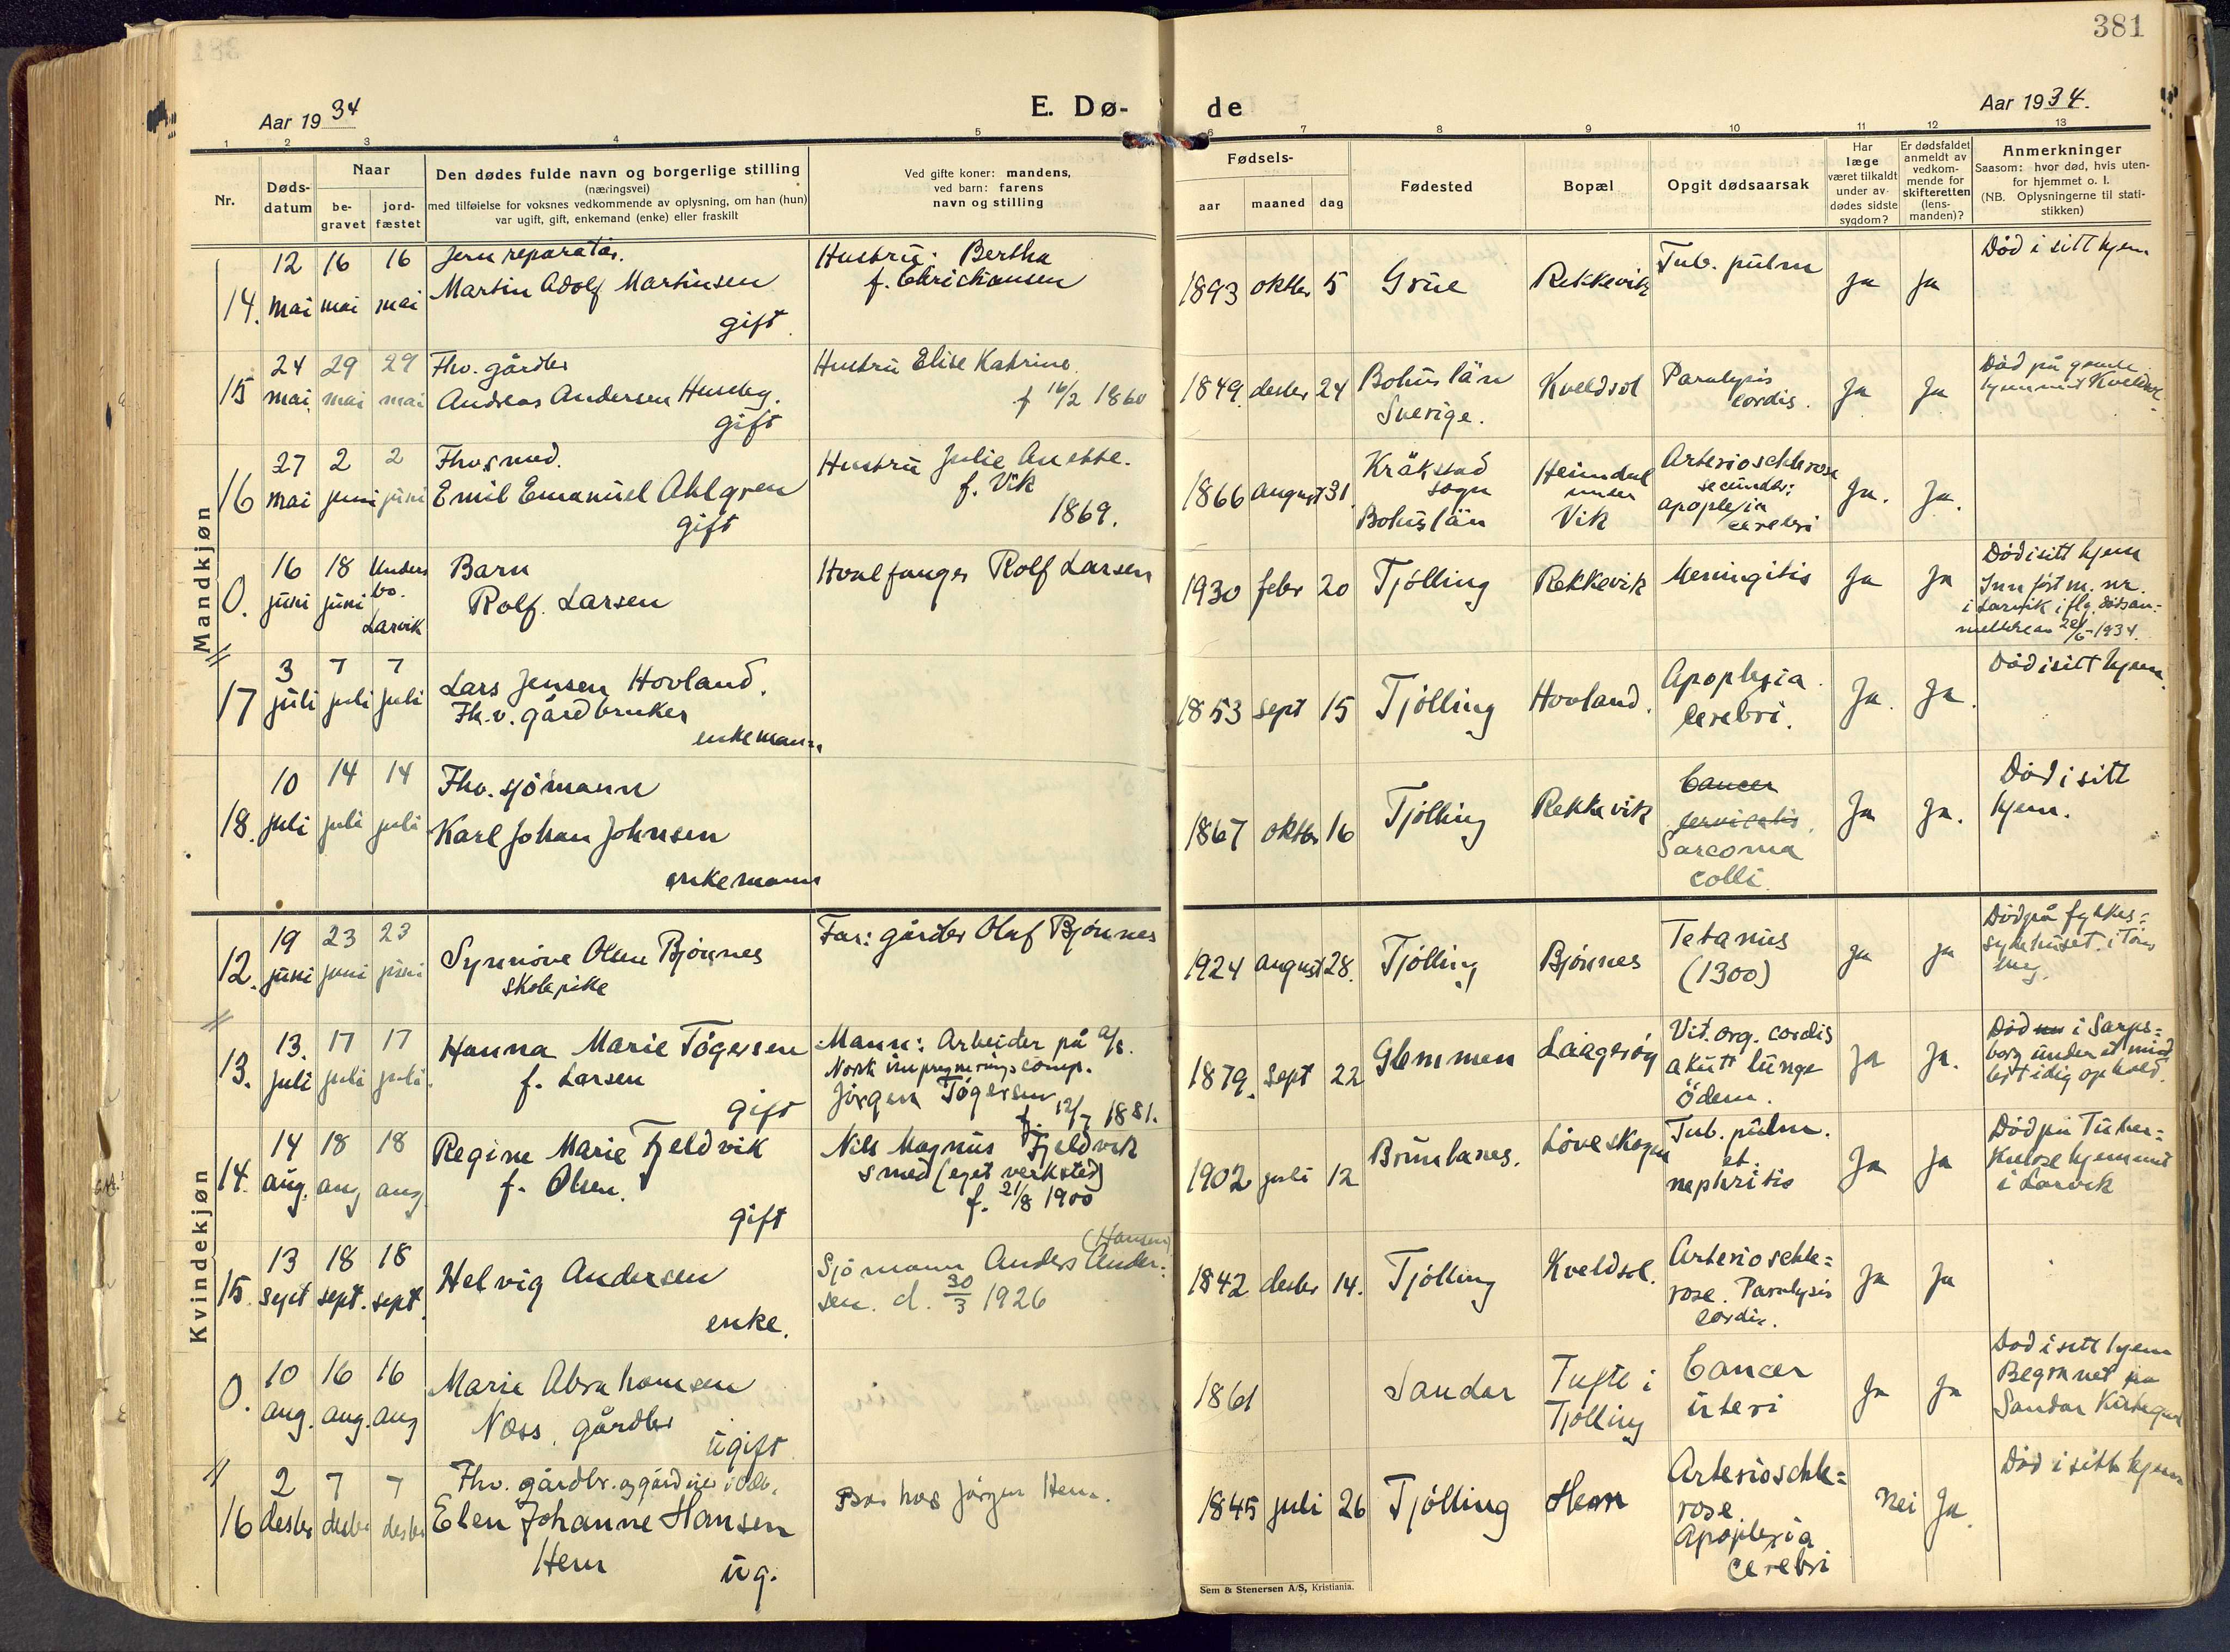 381
Aar 1934
E. Dø-
de
Aar 1934.
1 2 3 4 5 6 7 8 9 10 11 12 13
Nr.
Døds-
datum
Naar
be-
gravet
jord-
fæstet
Den dødes fulde navn og borgerlige stilling
(næringsvei)
med tilføielse for voksnes vedkommende av oplysning, om han (hun)
var ugift, gift, enkemand (enke) eller fraskilt
Ved gifte koner: mandens,
ved barn: farens
navn og stilling
Fødsels-
aar maaned dag
Fødested
Bopæl
Opgit dødsaarsak
Har
læge
været tilkaldt
under av-
dødes sidste
sygdom?
Er dødsfaldet
anmeldt av
vedkom-
mende for
skifteretten
(lens-
manden)?
Anmerkninger
Saasom: hvor død, hvis uten-
for hjemmet o. l.
(NB. Oplysningerne til stati-
stikken)
Mandkjøn
14.
12 mai
16 mai
16 mai
Jernreparatør.
Martin Adolf Martinsen
gift.
Hustru: Bertha
f. Christiansen
1893 oktbr 5
Grue
Rekkevik
Tub. pulm
Ja
Ja
Død i sitt hjem
15
24 mai
29 mai
29 mai
Fhv. gårdbr
Andreas Andersen Huseby.
gift
Hustru Elise Katrine.
f 16/2 1860
1849. desbr 24
Bohuslän
Sverige.
Kveldsol
Paralysis
cordis.
Ja
Ja
Død på gamle
hjemmet Kveldsol.
16
27 mai
2 juni
2 juni
Fhv smed.
Emil Emanuel Ahlgren
gift
Hustru Julie Anette.
f. Vik
1869.
1866 august 31
Kråkstad
sogn
Bohuslän
Heimdal
under
Vik
Arterioschlerose
secunder:
apoplexia
cerebri
Ja.
Ja.
0.
16 juni
18 juni
Undersbo.
Larvik
Barn
Rolf. Larsen
Hvalfanger Rolf Larsen
1930 febr 20
Tjölling
Rekkevik
Meningitis
Ja
Ja
Død i sitt hjem
Innført m. nr.
i Larvik iflg. dødsan=
meldelse 28/6-1934.
17
3 juli
7 juli
7 juli
Lars Jensen Hovland.
Fh.v. gårdbruker
enkemann
1853 sept 15
Tjölling
Hovland.
Apoplexia
cerebri.
Ja.
Ja.
Død i sitt hjem.
18.
10 juli
14 juli
14 juli
Fhv. sjömann
Karl Johan Johnsen
enkemann
1867 oktbr 16
Tjölling
Rekkevik
Cancer
cervicalis.
Sarcoma
colli.
Ja
Ja.
Død i sitt
hjem.
Kvindekjøn
12.
19 juni
23 juni
23 juni
Synnöve Olsen Bjönnes
skolepike
Far: gårdbr Olaf Bjönnes
1924 august 28.
Tjölling
Bjönnes
Tetanus
(1300)
Ja
Ja
Død på fylkes=
sykehuset i Töns
berg.
13.
13. juli
17 juli
17 juli.
Hanna Marie Tögersen
f. Larsen
gift
Mann: Arbeider på A/S.
Norsk impregnerings comp.
Jörgen Tögersen
f. 12/7 1881.
1879. sept 22
Glemmen
Laagerøy
Vit. org. cordis
akutt lunge
ödem.
Ja
Ja.
Død i Sarps=
borg under et mid
lertidig ophold.
14.
14 aug.
18 aug
18 aug
Regine Marie Fjeldvik
f. Olsen.
gift
Nils Magnus Fjeldvik
smed (eget verksted)
f. 21/8 1900
1902 juli 12
Brunlanes.
Löveskogen
Tub. pulm.
et.
nephritis
Ja
Ja
Død på Tuber=
kulose hjemmet
i Larvik
15.
13 sept
18 sept.
18 sept.
Helvig Andersen
enke.
(Hansen)
Sjömann Anders Ander=
sen. d. 30/3 1926
1842 desbr 14.
Tjölling
Kveldsol.
Arterioschle=
rose. Paralysis
cordis.
Ja
Ja
0.
10 aug.
16 aug.
16 aug
Marie Abrahamsen
Næss, gårdbr
ugift.
1861
Sandar
Tufte i
Tjölling
Cancer
uteri
Ja
Ja
Død i sitt hjem
Begravet på
Sandar Kirkegård
16
2 desbr
7 desbr
7 desbr
Fhv. gårdbr.
Elen Johanne Hansen
Hem
ug.
Bor hos Jörgen Hem.
1845 juli 26
Tjölling
Hem
Arterioschle=
rose
Apoplexia
cerebri
Nei
Ja.
Død i sitt hjem
Sem & Stenersen A/S, Kristiania.